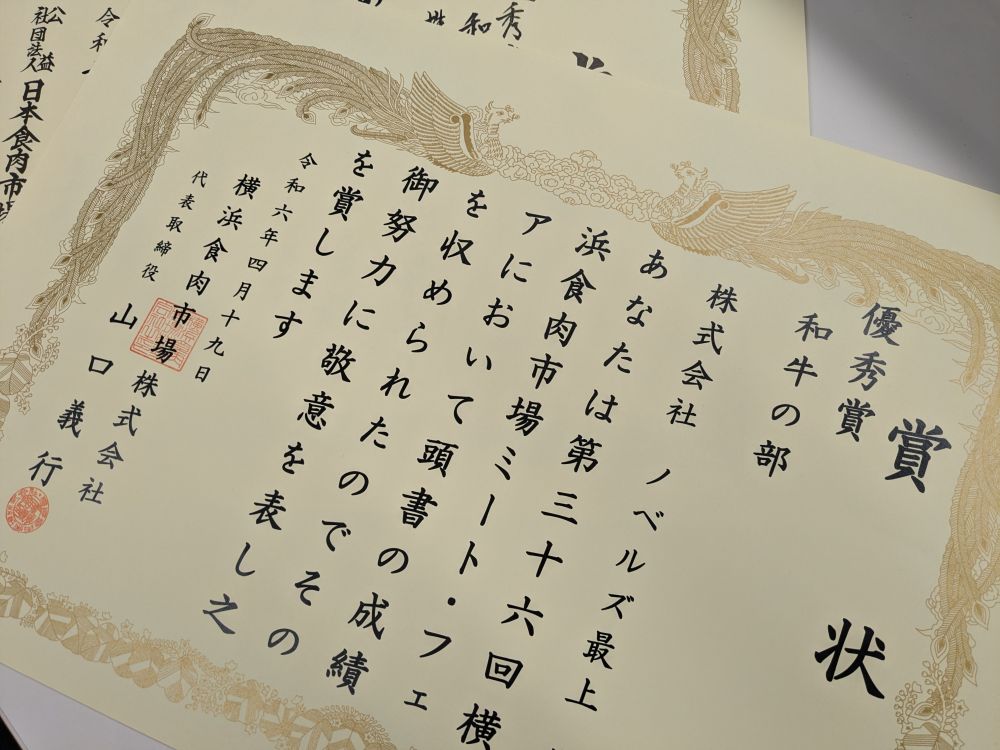 賞状
優秀賞
和牛の部
株式会社 ノベルズ最上
あなたは第三十六回横
浜食肉市場ミート・フェ
アにおいて頭書の成績
を収められたのでその
御努力に敬意を表し之
を賞します
令和六年四月十九日
横浜食肉市場株式会社
代表取締役 山口義行
秀
和
令和
公益
社団法人
日本食肉市場